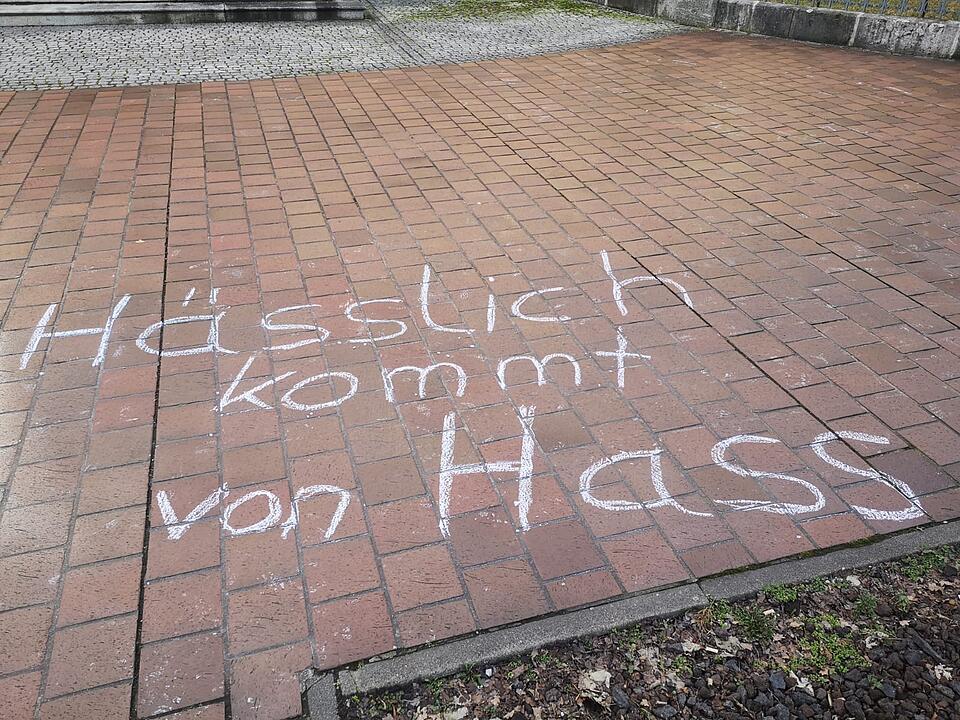 Hässlich
kommt
von Hass